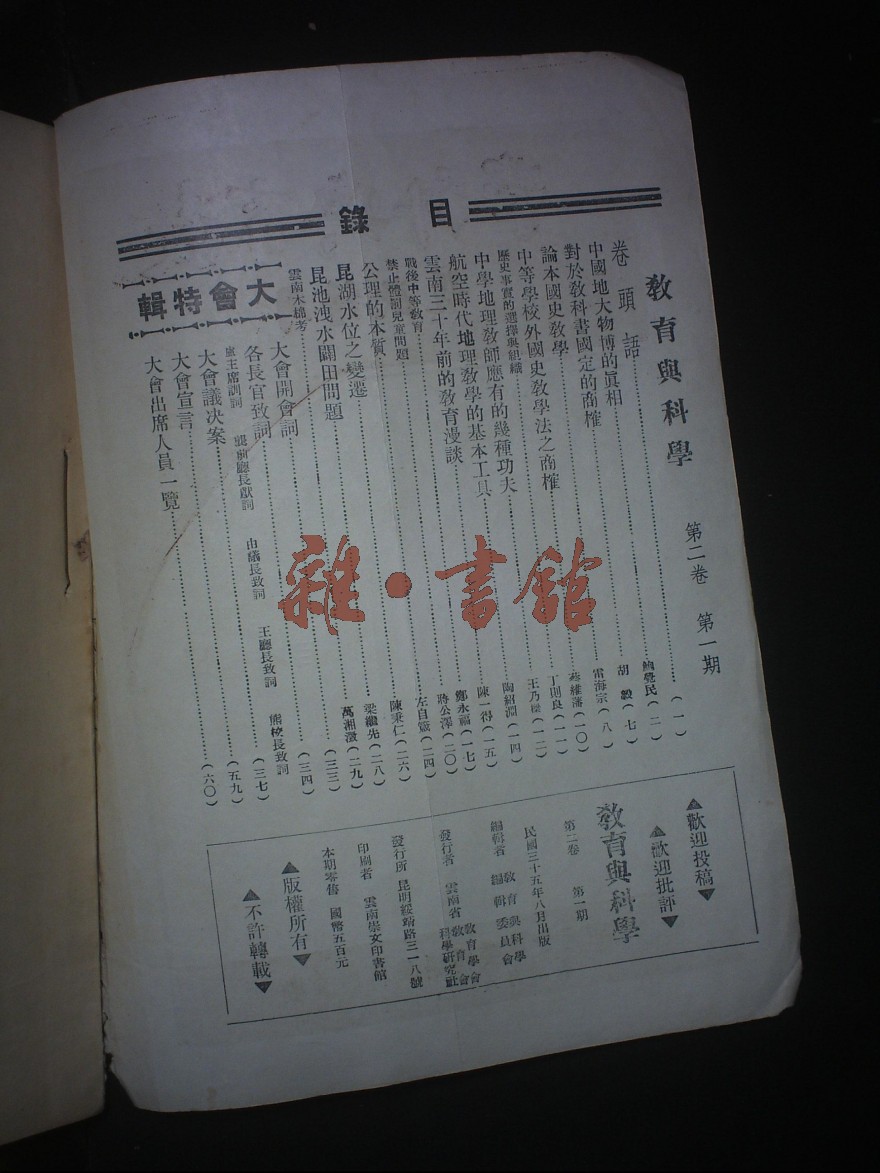 目錄
教育與科學 第二卷 第一期
卷頭語(一)
中國地大物博的眞相 鮑覺民(二)
對於教科書國定的商榷 胡毅(七)
論本國史教學 雷海宗(八)
中等學校外國史教學法之商榷 蔡維藩(一〇)
歷史事實的選擇與組織 丁則良(一一)
中學地理教師應有的幾種功夫 王乃樑(一二)
航空時代地理教學的基本工具 陶紹淵(一四)
雲南三十年前的教育漫談 陳一得(一五)
戰後中等教育 鄭永福(一七)
禁止體罰兒童問題 蔣公澤(二〇)
公理的本質 左自箴(二四)
昆湖水位之變遷 陳秉仁(二六)
昆池洩水闢田問題 梁繼先(二八)
雲南木棉考 萬湘澂(二九)
大會特輯
大會開會詞(三三)
各長官致詞(三四)
盧主席訓詞 龔前廳長獻詞 由議長致詞 王廳長致詞 熊校長致詞
大會議決案(三七)
大會宣言(五九)
大會出席人員一覽(六〇)
歡迎投稿
歡迎批評
教育與科學
第二卷 第一期
民國三十五年八月出版
編輯者 教育與科學編輯委員會
發行者 雲南省教育會 教育學會 科學研究社
發行所 昆明綏靖路三一八號
印刷者 雲南崇文印書館
本期零售 國幣五百元
版權所有
不許轉載
雜·書館